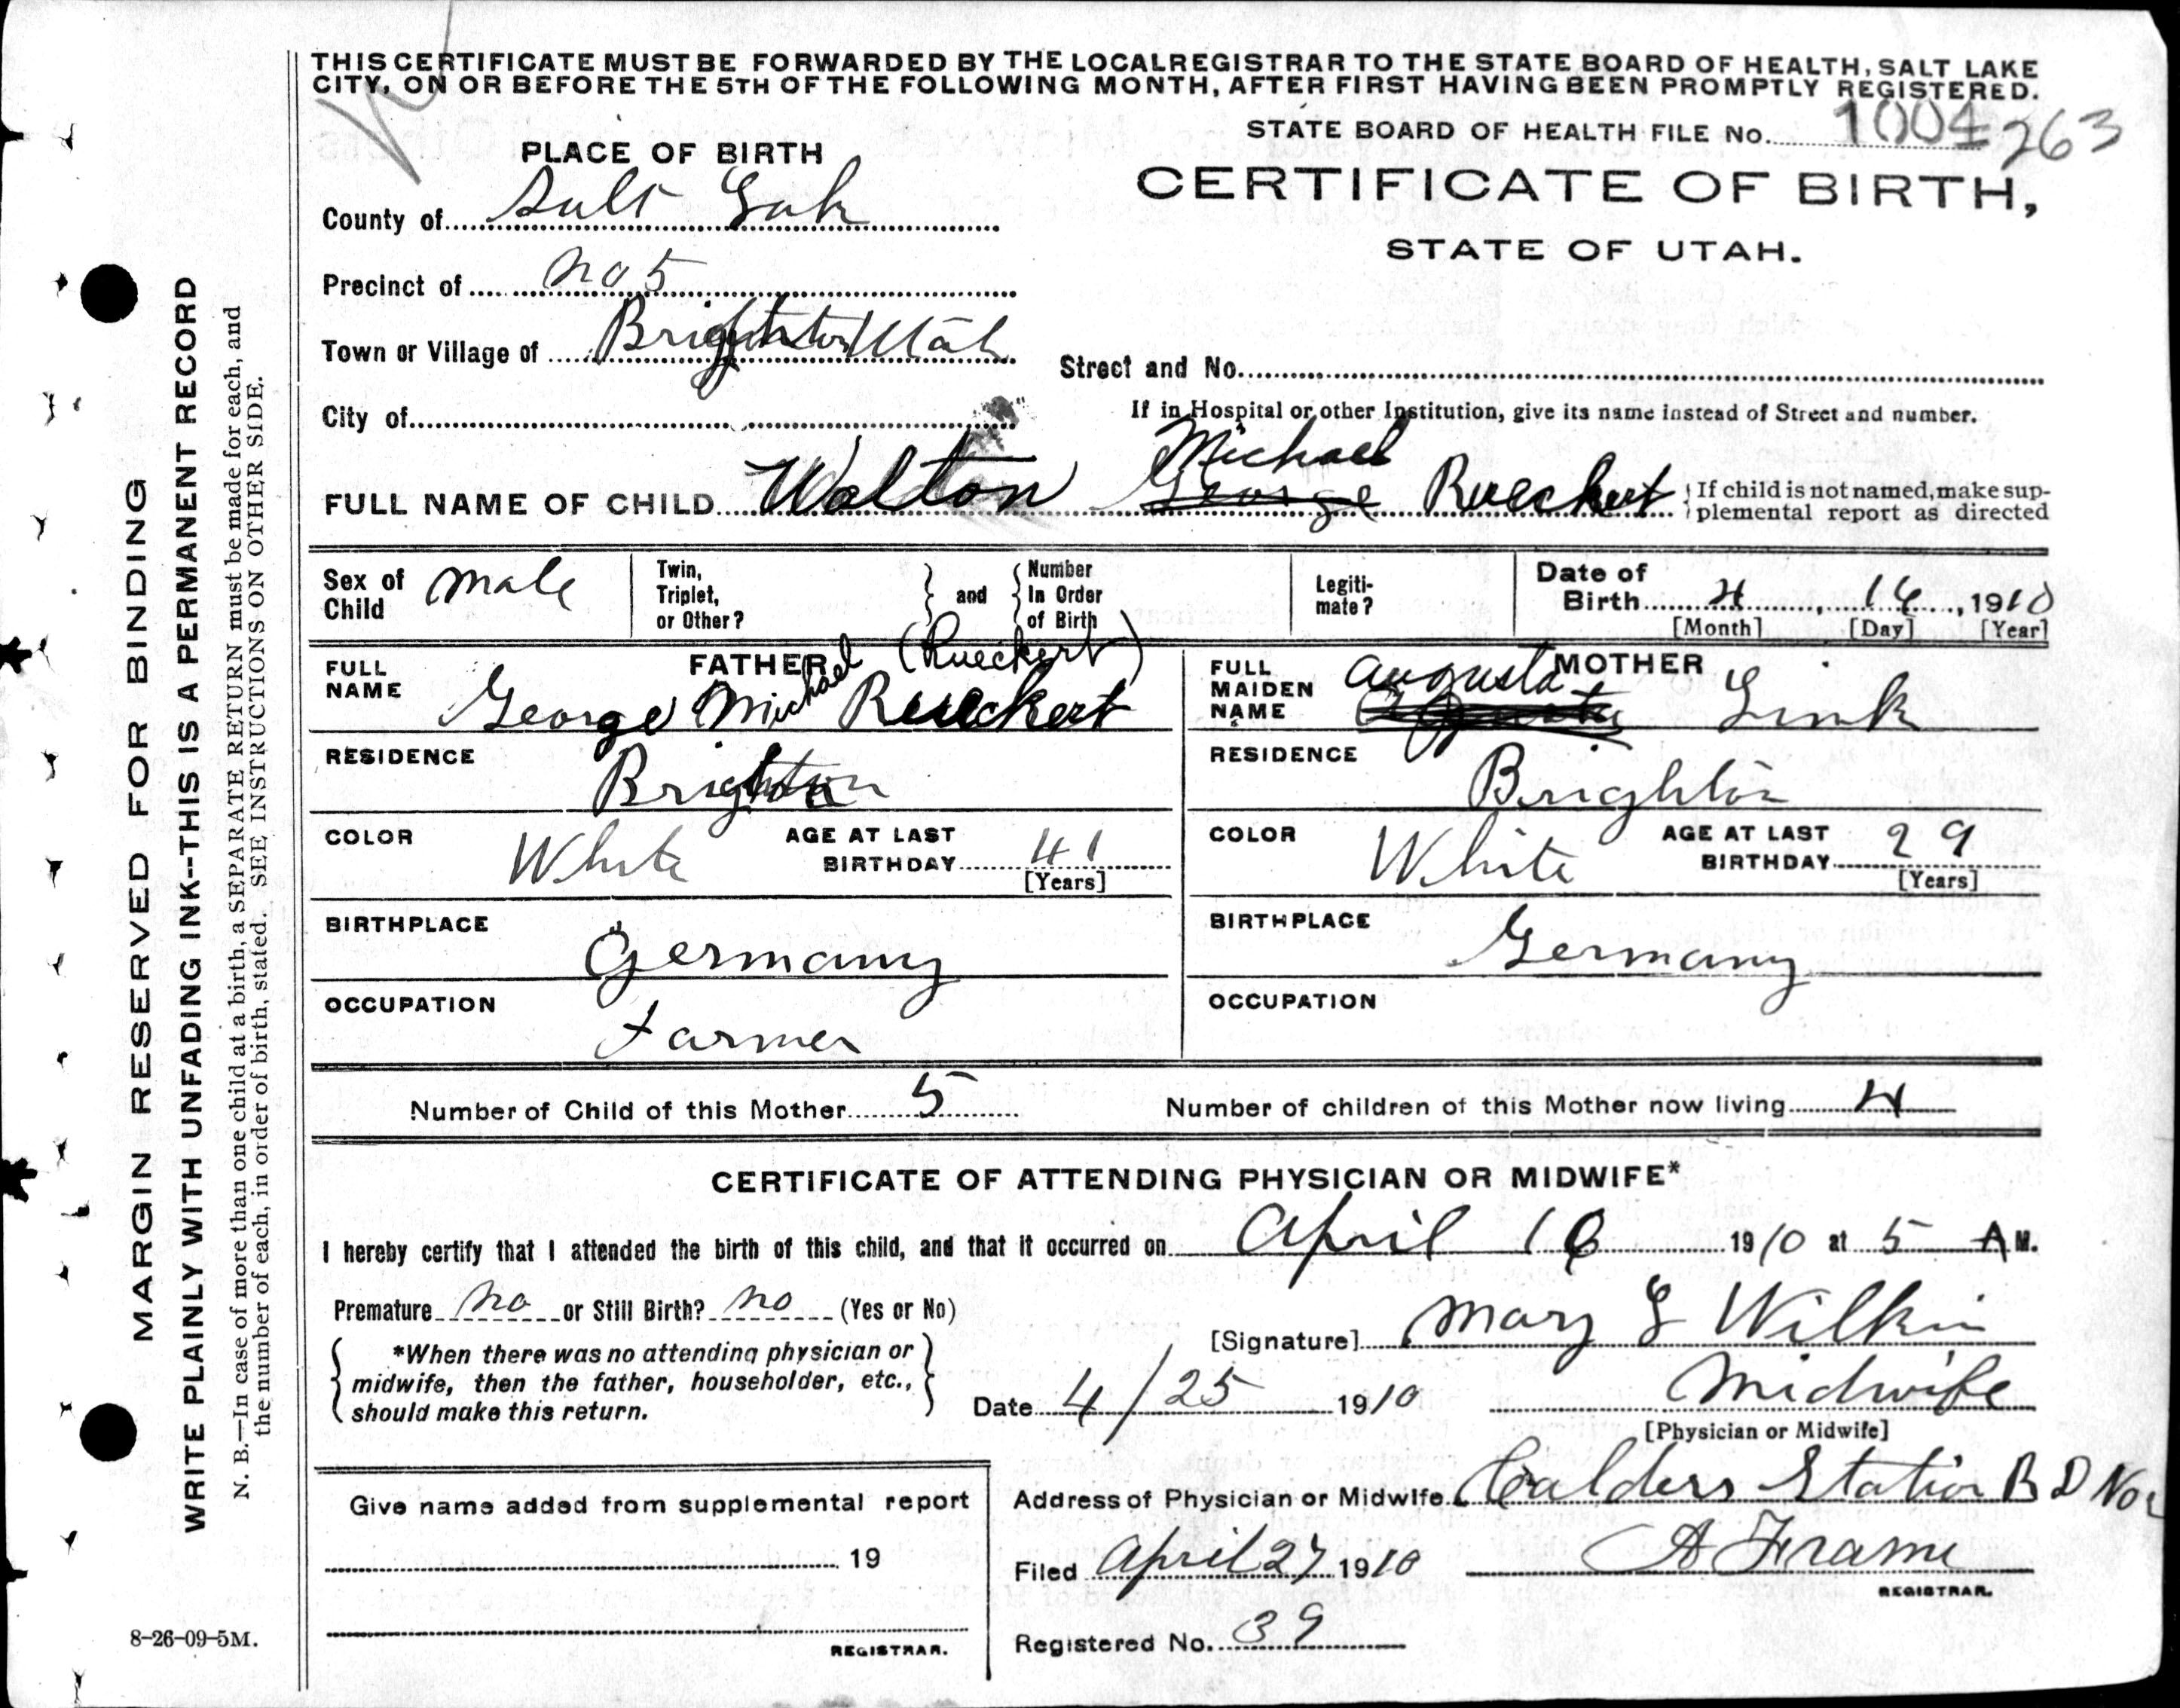 THIS CERTIFICATE MUST BE FORWARDED BY THE LOCAL REGISTRAR TO THE STATE BOARD OF HEALTH, SALT LAKE
CITY, ON OR BEFORE THE 5TH OF THE FOLLOWING MONTH, AFTER FIRST HAVING BEEN PROMPTLY REGISTERED.
STATE BOARD OF HEALTH FILE No. 1004 263
PLACE OF BIRTH
CERTIFICATE OF BIRTH,
STATE OF UTAH.
County of Salt Lak
Precinct of no 5
Town or Village of Brighton Utah
Street and No.
City of
If in Hospital or other Institution, give its name instead of Street and number.
Michael
FULL NAME OF CHILD Walton George Rueckert { If child is not named, make sup-
plemental report as directed
Sex of Child male
Twin, Triplet, or Other? } and { Number In Order of Birth
Legiti-mate?
Date of Birth 4, 16, 1910
[Month] [Day] [Year]
FATHER (Rueckert)
FULL NAME George Michael Rueckert
MOTHER
FULL MAIDEN NAME Augusta Link
RESIDENCE Brighton
RESIDENCE Brighton
COLOR White AGE AT LAST BIRTHDAY 41 [Years]
COLOR White AGE AT LAST BIRTHDAY 29 [Years]
BIRTHPLACE Germany
BIRTHPLACE Germany
OCCUPATION Farmer
OCCUPATION
Number of Child of this Mother 5 Number of children of this Mother now living 4
CERTIFICATE OF ATTENDING PHYSICIAN OR MIDWIFE*
I hereby certify that I attended the birth of this child, and that it occurred on April 16 1910 at 5 A M.
Premature no or Still Birth? no (Yes or No)
[Signature] Mary L Wilkin
*When there was no attending physician or
midwife, then the father, householder, etc.,
should make this return.
Date 4/25 1910 Midwife
[Physician or Midwife]
Give name added from supplemental report
19
REGISTRAR.
Address of Physician or Midwife Calders Station R D No
Filed April 27 1910 A Frame
REGISTRAR.
Registered No. 39
MARGIN RESERVED FOR BINDING
WRITE PLAINLY WITH UNFADING INK--THIS IS A PERMANENT RECORD
N. B.—In case of more than one child at a birth, a SEPARATE RETURN must be made for each, and
the number of each, in order of birth, stated. SEE INSTRUCTIONS ON OTHER SIDE.
8-26-09-5M.